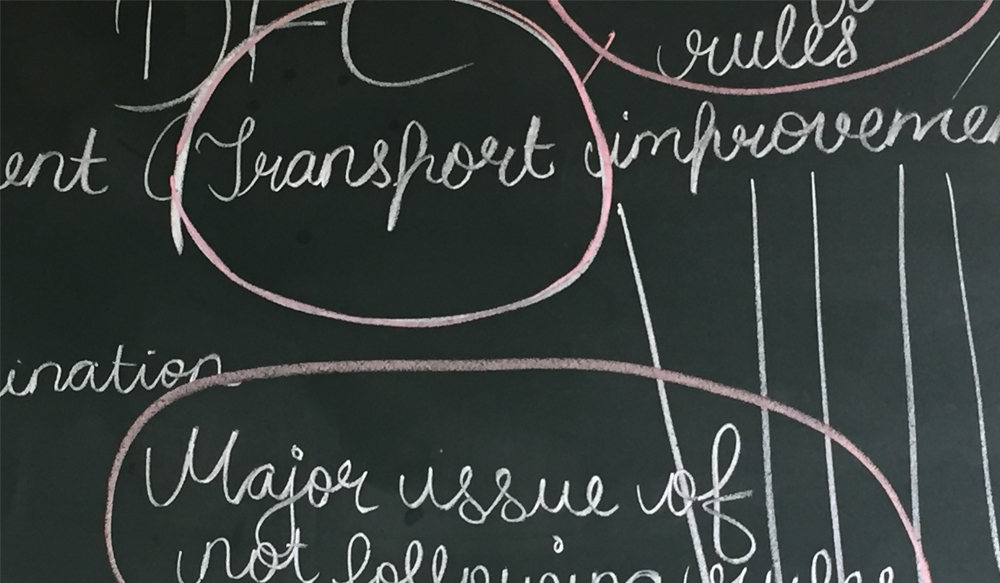 rules
ent (Transport improveme
ination
Major issue of
not following rules